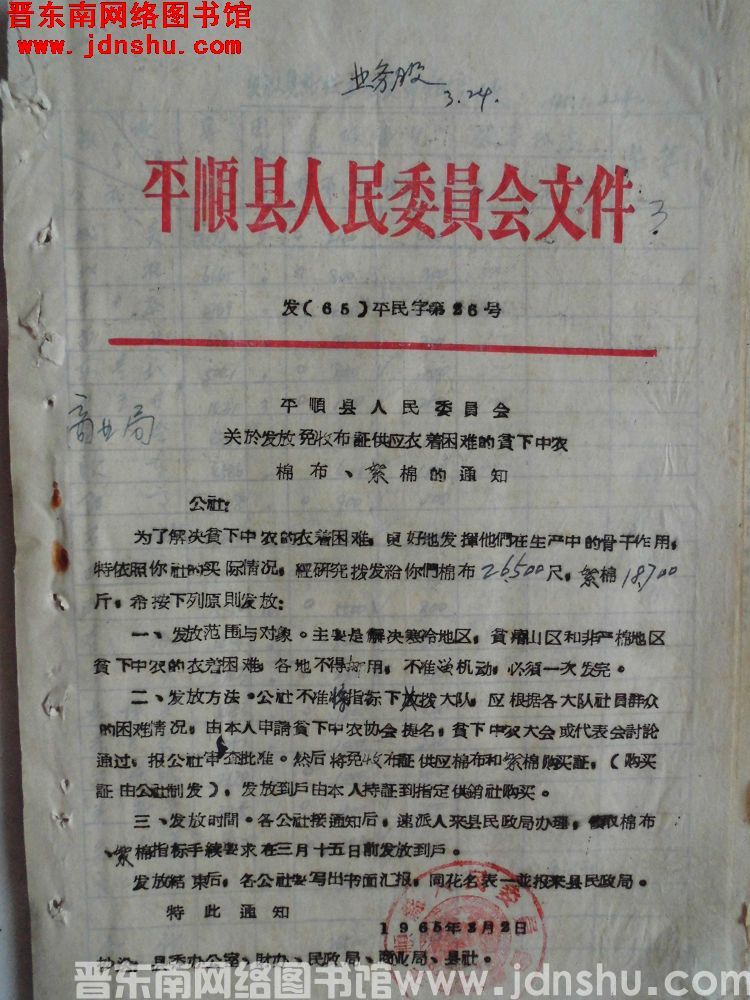 晋东南网络图书馆
www.jdnshu.com
业务股
3.24.
平順县人民委員会文件
3
发(65)平民字第26号
平順县人民委員会
商业局
关於发放免收布証供应衣着困难的貧下中农
棉布、絮棉的通知
公社:
为了解决貧下中农的衣着困难,更好地发揮他們在生产中的骨干作用,
特依照你社的实际情况,經研究拨发給你們棉布26,500尺,絮棉18,700
斤,希按下列原則发放:
一、发放范围与对象。主要是解决寒冷地区,貧瘠山区和非产棉地区
貧下中农的衣着困难,各地不得挪用,不准留机动,必須一次发完。
二、发放方法。公社不准将指标下放拨大队,应根据各大队社員群众
的困难情况,由本人申請貧下中农协会提名,貧下中农大会或代表会討論
通过,报公社审查批准。然后将免收布証供应棉布和絮棉购买証,(购买
証由公社制发),发放到戶由本人持証到指定供銷社购买。
三、发放时間。各公社接通知后,速派人来县民政局办理,領取棉布
、絮棉指标手續要求在三月十五日前发放到戶。
发放結束后,各公社要写出书面汇报,同花名表一並报来县民政局。
特此通知
1965年3月2日
抄送:县委办公室、財办、民政局、商业局、县社。
晋东南网络图书馆 www.jdnshu.com